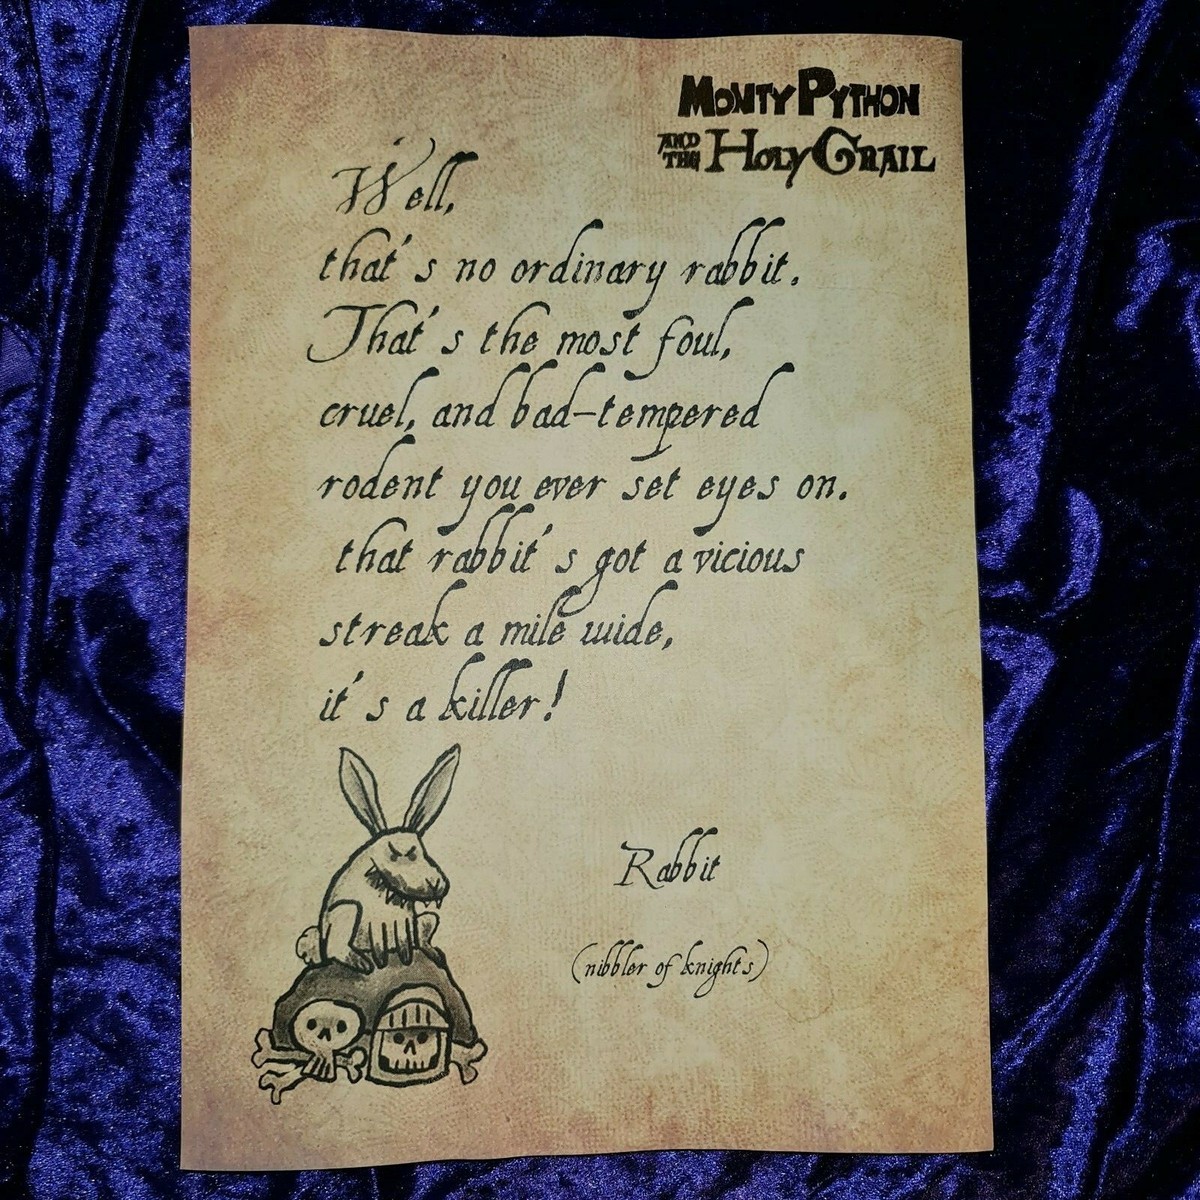 Monty Python
and the Holy Grail
Well,
that's no ordinary rabbit.
That's the most foul,
cruel, and bad-tempered
rodent you ever set eyes on.
that rabbit's got a vicious
streak a mile wide,
it's a killer!
Rabbit
(nibbler of knights)